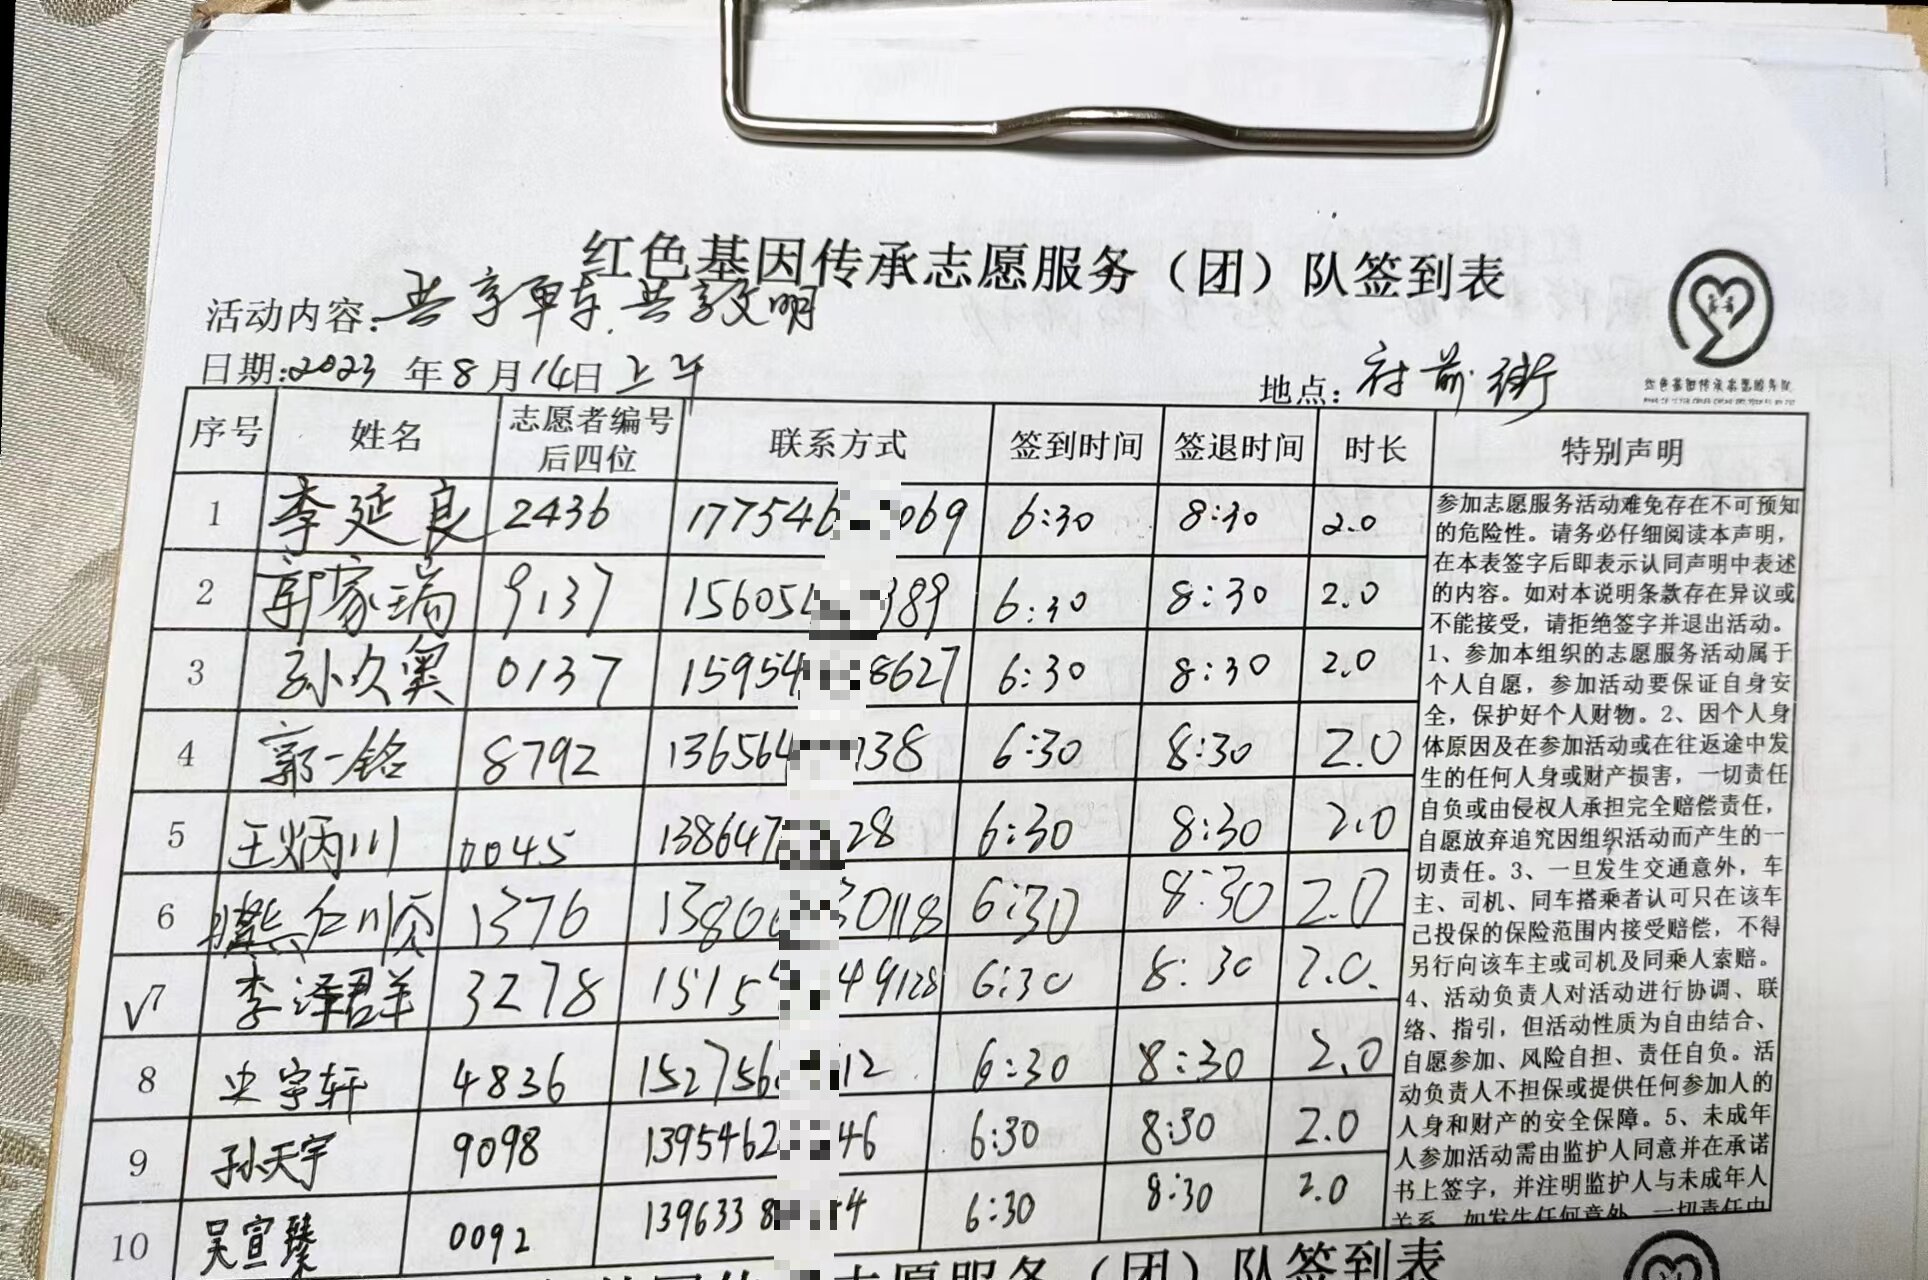 红色基因传承志愿服务（团）队签到表
活动内容：共享单车.共享文明
日期:2023年8月14日上午
地点：府前街
序号 姓名 志愿者编号后四位 联系方式 签到时间 签退时间 时长 特别声明
1 李延良 2436 177546 069 6:30 8:30 2.0
2 郭家瑞 9137 15605 389 6:30 8:30 2.0
3 孙久奥 0137 15954 8627 6:30 8:30 2.0
4 郭一铭 8792 136564 738 6:30 8:30 2.0
5 王炳川 0045 138647 28 6:30 8:30 2.0
6 仁顺 1376 1380 30118 6:30 8:30 2.0
√7 李泽群 3278 1515 49128 6:30 8:30 2.0.
8 史宇轩 4836 152756 12 6:30 8:30 2.0
9 孙天宇 9098 1395462 46 6:30 8:30 2.0
10 吴宣臻 0092 1396338 4 6:30 8:30 2.0
参加志愿服务活动难免存在不可预知
的危险性。请务必仔细阅读本声明，
在本表签字后即表示认同声明中表述
的内容。如对本说明条款存在异议或
不能接受，请拒绝签字并退出活动。
1、参加本组织的志愿服务活动属于
个人自愿，参加活动要保证自身安
全，保护好个人财物。2、因个人身
体原因及在参加活动或在往返途中发
生的任何人身或财产损害，一切责任
自负或由侵权人承担完全赔偿责任，
自愿放弃追究因组织活动而产生的一
切责任。3、一旦发生交通意外，车
主、司机、同车搭乘者认可只在该车
己投保的保险范围内接受赔偿，不得
另行向该车主或司机及同乘人索赔。
4、活动负责人对活动进行协调、联
络、指引，但活动性质为自由结合、
自愿参加、风险自担、责任自负。活
动负责人不担保或提供任何参加人的
人身和财产的安全保障。5、未成年
人参加活动需由监护人同意并在承诺
书上签字，并注明监护人与未成年人
关系，如发生任何意外，一切责任由
志愿服务（团）队签到表